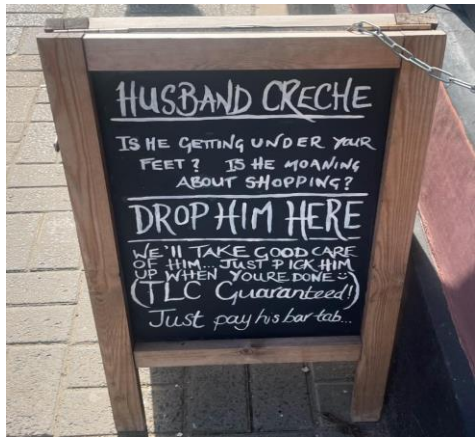 HUSBAND CRECHE
IS HE GETTING UNDER YOUR
FEET? IS HE MOANING
ABOUT SHOPPING?
DROP HIM HERE
WE'LL TAKE GOOD CARE
OF HIM... JUST PICK HIM
UP WHEN YOURE DONE :)
(TLC Guaranteed!)
Just pay his bar tab...